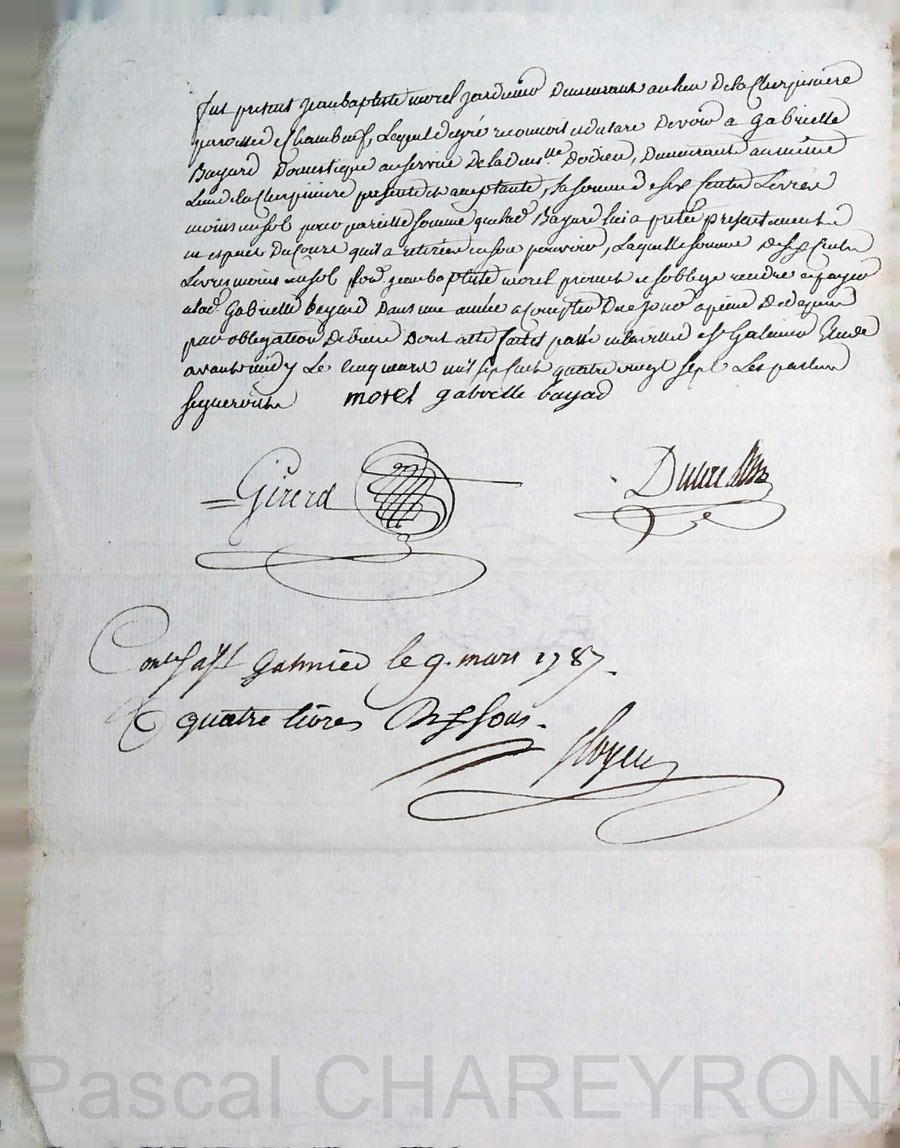 fut present jean baptiste morel jardinier demeurant au lieu de la Cherpiniere
paroisse de Chambeuf, Lequel de gré reconnoit et declare devoir a Gabrielle
Bayard domestique au service de la Dem.lle Dodieu, demeurante au même
Lieu de la Cherpiniere presente et acceptante, la somme de six Cents Livres
moins un sol pour pareille somme que lad. Bayard lui a prétée presentement
en especes du Cours qu'il a retirées en son pouvoir, Laquelle somme de six Cents
Livres moins un sol led. jean baptiste morel promet et s'oblige rendre et payer
a lad. Gabrielle bayard dans une année a compter de ce jour a peine de depens
par obligation de biens dont acte fait et passé en la ville de St Galmier Etude
avant midy Le cinq mars mil sept cent quatre vingt sept Les parties
signeront
morel gabrielle bayad
Girerd
Con.lé a St Galmier le 9. mars 1787.
R quatre livres dix sous.